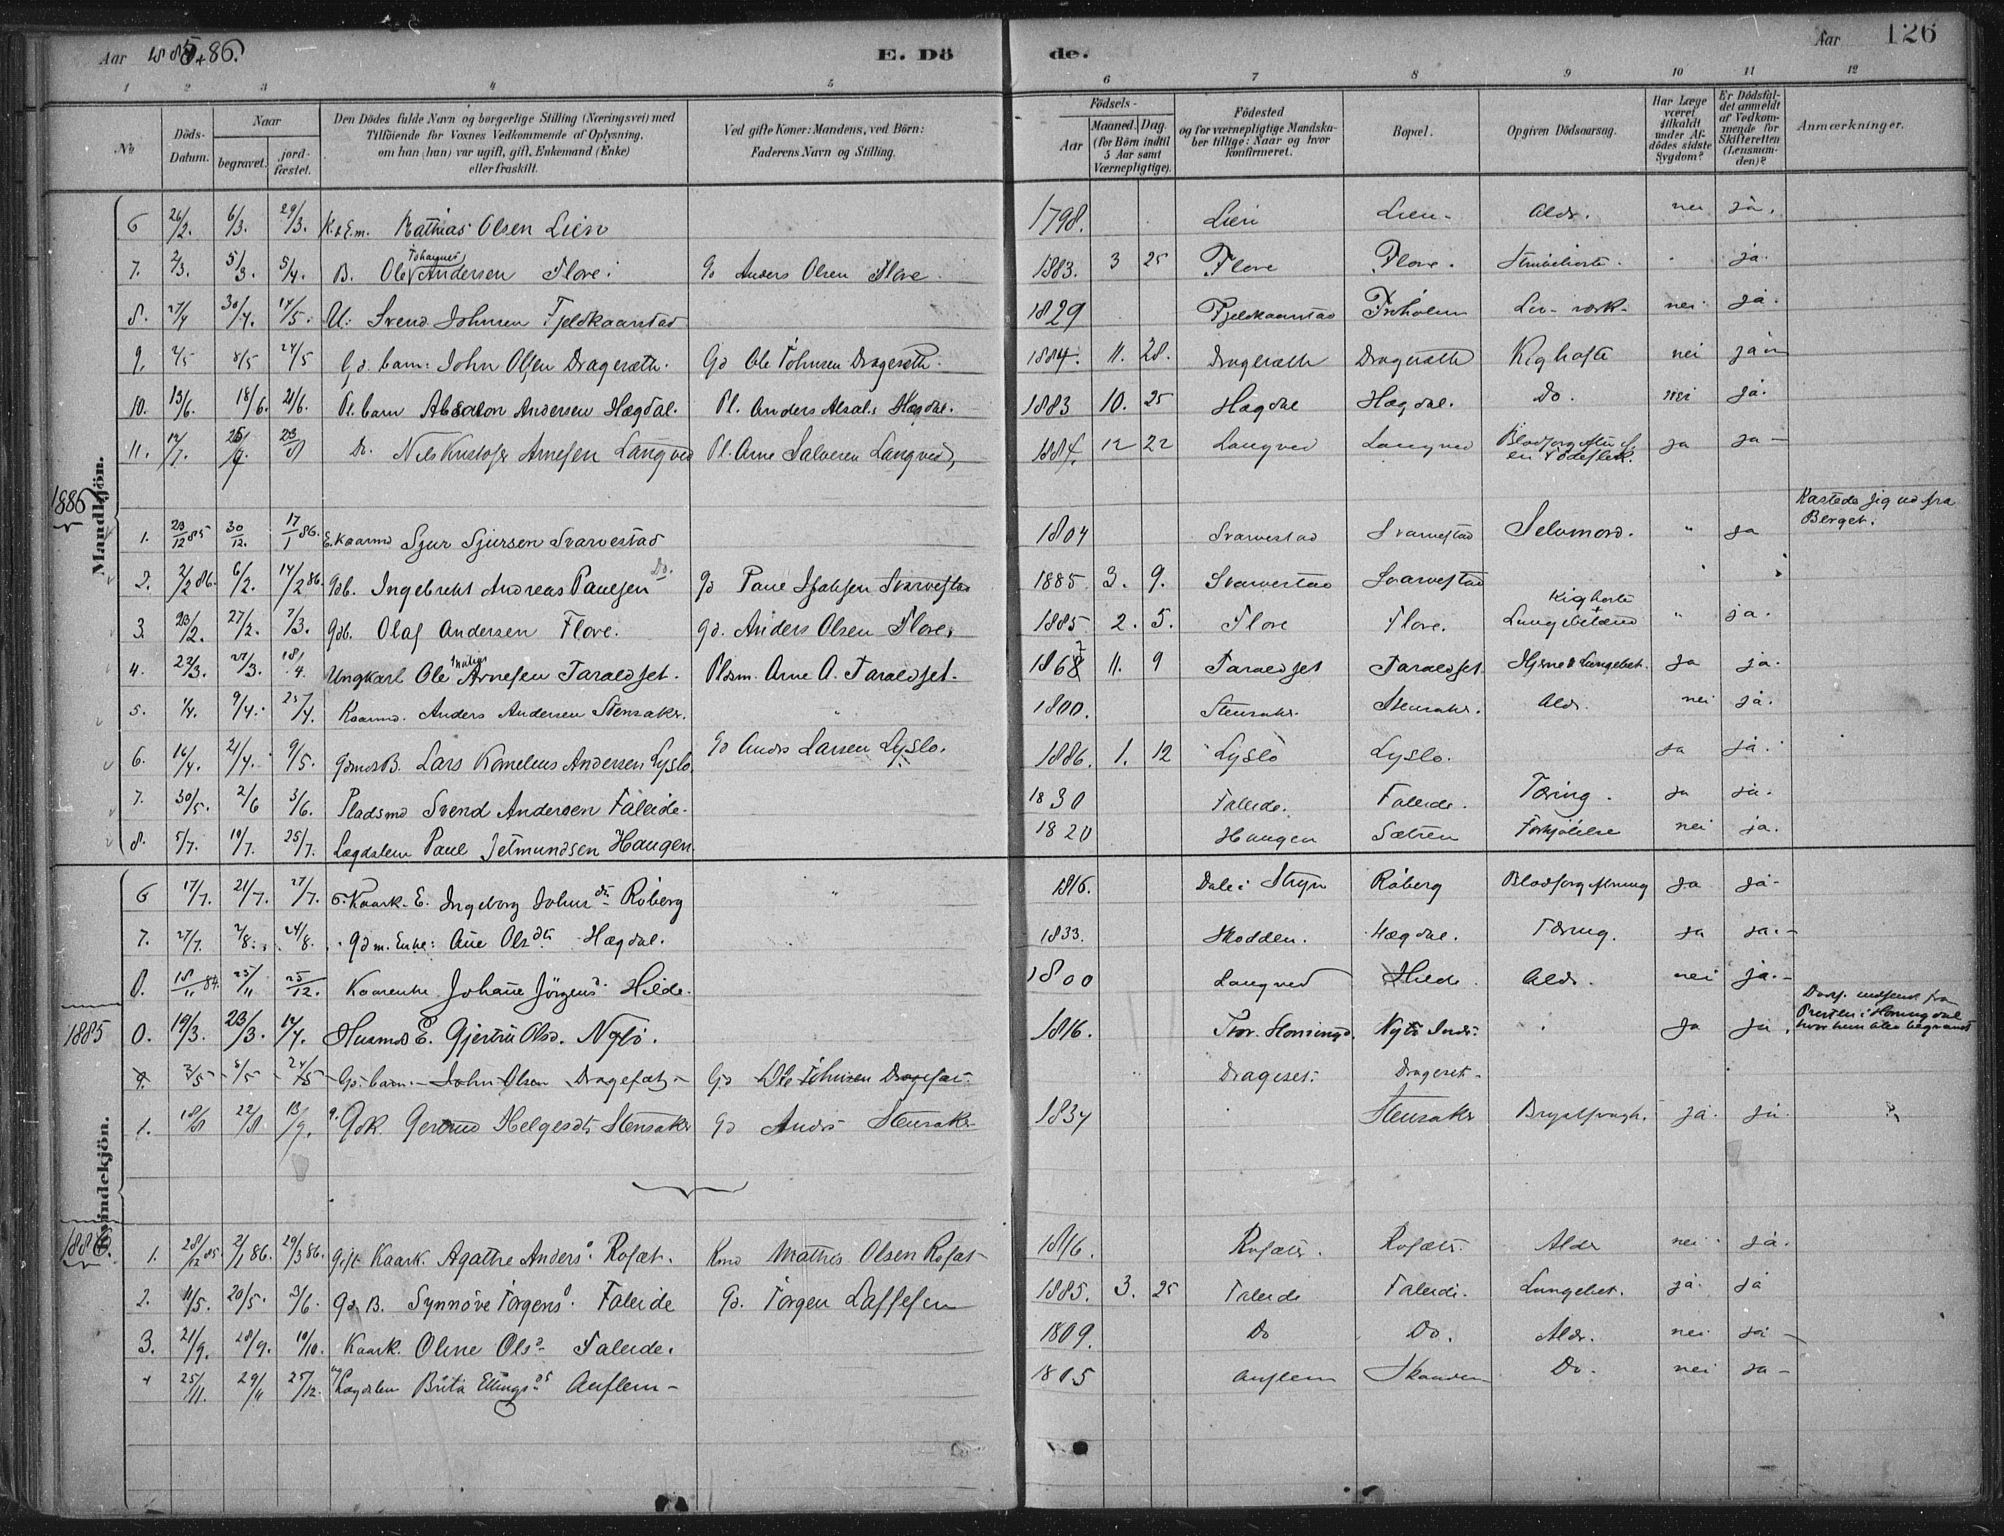 Aar 1885+86.
E. Dö
de.
Aar
126
1 2 3 4 5 6 7 8 9 10 11 12
No
Döds-
Datum.
Naar
begravet.
jord-
fæstet.
Den Dödes fulde Navn og borgerlige Stilling (Næringsvei) med
Tilföiende for Voxnes Vedkommende af Oplysning,
om han (hun) var ugift, gift, Enkemand (Enke)
eller fraskilt.
Ved gifte Koner: Mandens, ved Börn:
Faderens Navn og Stilling.
Födsels-
Aar
Maaned. Dag.
(for Börn indtil
5 Aar samt
Værnepligtige).
Födested
og for værnepligtige Mandska-
ber tillige: Naar og hvor
konfirmeret.
Bopæl.
Opgiven Dödsaarsag.
Har Læge
været
tilkaldt
under Af-
dödes sidste
Sygdom?
Er Dödsfal-
det anmeldt
af Vedkom-
mende for
Skifteretten
(Lensman-
den)?
Anmærkninger.
Mandkjön.
6 26/2. 6/3. 29/3. K. & Em. Mathias Olsen Lien 1798. Lien Lien Aldr. nei ja.
7. 2/3. 5/3. 5/4. B. Ole Johannes Andersen Flore. Gd Anders Olsen Flore 1883. 3 25 Flore Flore. Strubehoste. ja.
8. 27/4 30/4. 14/5. U. Svend Johnsen Fjeldkaarstad 1829 Fjeldkaarstad nei ja.
9. 2/5 8/5 24/5 Gd. barn: John Olsen Drageræth. Gd Ole Johnsen Drageseth. 1884. 11. 28. Drageræth Drageræth Kighoste nei ja
10. 13/6. 18/6. 21/6. Pl. barn Absalon Andersen Hægdal. Pl. Anders Absal. Hægdal. 1883 10. 25 Hægdal Hægdal. Do. nei ja.
11. Do. Nils Kristofer Arnesen Langved Pl. Arne Salvesen Langved, 1884. 12 22 Langved Langved ja ja
1886
1. 23/12 85 30/12. 17/1 86. E. Kaarmd Sjur Sjursen Svarvestad 1804 Svarvestad Svarvestad Selvmord. " ja Kastede sig ud fra
Berget.
2. 2/2 86. 6/2. 14/2 86. Gdb. Ingebrekt Andreas Paulsen Do. Gd Paul Isaksen Svarvestad 1885 3. 9. Svarvestad Svarvestad
3. 23/2. 27/2. 7/3. Gdb. Olaf Andersen Flore. Gd. Anders Olsen Flore. 1885 2. 5. Flore Flore. Kighoste + Lungebetænd " ja.
4. 22/3. 27/3. 18/4. Ungkarl Ole Arnesen Taraldset. Pldsm. Arne A. Taraldset. 1867 11. 9 Taraldset Taraldset. Hjerne & Lungebet. ja ja.
5. 1/4. 9/4. 25/4. Kaarmd. Anders Andersen Stensaker. " 1800. Stensaker. Stensaker. Aldr. nei ja.
6. 16/4. 21/4. 9/5. Gdmds B. Lars Kornelius Andersen Lyslo. Gd Anders Larsen Lyslo. 1886. 1. 12 Lyslo Lyslo. ja ja.
7. 30/5. 2/6 3/6. Pladsmd Svend Andersen Faleide. 1830 Faleide. Faleide. Tæring. ja ja.
8. 5/7. 10/7. 25/7. Lægdslem Paul Jetmundsen Haugen. 1820 Haugen Sætren Forkjölelse nei ja.
Kvindekjön.
6 17/7. 21/7. 27/7. Kaark. E. Ingeborg Johns dtr Röberg " 1816. Dale i Stryn Röberg ja ja.
7. 27/7. 2/8. 24/8. Gdm. Enke: Ane Ols dtr Hægdal. 1833. Skodden. Hægdal. Tæring. ja ja.
8. 18/11 84. 23/11 25/12. Kaarenke Johane Jörgens d. Hilde. 1800 Langved Hilde. Aldr. nei ja.
1885 0. 19/3. 23/3. 14/4. Husmds E. Gjertru Olsd. Nylö. 1816. ja ja. Dödsf. indsendt fra
Presten i Horningdal
hvor hun blev begravet
9. 2/5 8/5 24/5 Gd. barn John Olsen Dragesæt Gd Ole Johnsen Dragesæt. Drageset. Drageset.
1. 18/8 22/8 13/9. Gdk. Gertrud Helgesdtr Stensaker Gd Anders Stensaker 1834 Stensaker ja. ja.
1886.
1. 28/12 85. 2/1 86. 29/3 86. Gift Kaark. Agathe Anders d. Rosæt. Kmd Mathis Olsen Rosæt 1816. Rosæts. Rosæts. Alder nei ja.
2. 11/5. 20/5. 3/6. Gd. B. Synnöve Jörgens d. Faleide Gd. Jörgen Lassesen 1885. 3. 25 Faleide Faleide. Lungebet. ja. ja
3. 21/9. 28/9. 10/10. Kaark. Oline Ols d. Faleide. 1809. Do Do. Aldr. nei ja
4 25/11. 29/11 25/12. Lægdslem Brita Ellings d. Auflem 1805 Auflem Skaaden Do. nei ja